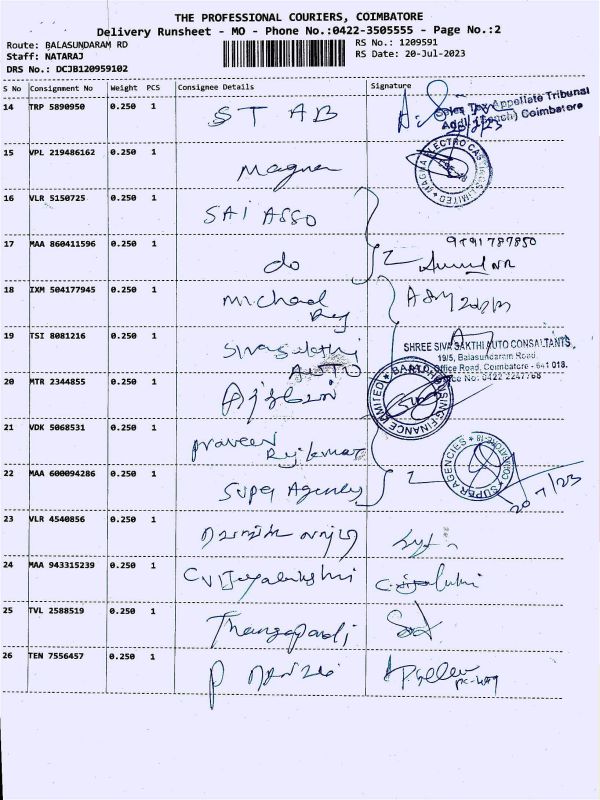 THE PROFESSIONAL COURIERS, COIMBATORE
Delivery Runsheet - MO - Phone No.:0422-3505555 - Page No.:2
Route: BALASUNDARAM RD
RS No.: 1209591
Staff: NATARAJ
RS Date: 20-Jul-2023
DRS No.: DCJB120959102
S No Consignment No Weight PCS Consignee Details Signature
14 TRP 5890950 0.250 1 STAB
Sales Tax Appellate Tribunal
Addl. Bench) Coimbatore
15 VPL 219486162 0.250 1 Magna
MAGNA ELECTRO CASTINGS LIMITED
16 VLR 5150725 0.250 1 SAI ASSO
17 MAA 860411596 0.250 1 do
9791787850
18 IXM 504177945 0.250 1 Michael
Raj
19 TSI 8081216 0.250 1 Sivasakthi
AUTO
SHREE SIVA SAKTHI AUTO CONSULTANTS,
19/5, Balasundaram Road,
Office Road, Coimbatore - 641 018.
20 MTR 2344855 0.250 1
HOUSING FINANCE LIMITED
21 VDK 5068531 0.250 1 Praveen
Rajkumar
22 MAA 600094286 0.250 1 Super Agency
SUPER AGENCIES * COIMBATORE-18
20/7/23
23 VLR 4540856 0.250 1
24 MAA 943315239 0.250 1 C Vijayalakshmi
25 TVL 2588519 0.250 1 Thangapandi
26 TEN 7556457 0.250 1 P